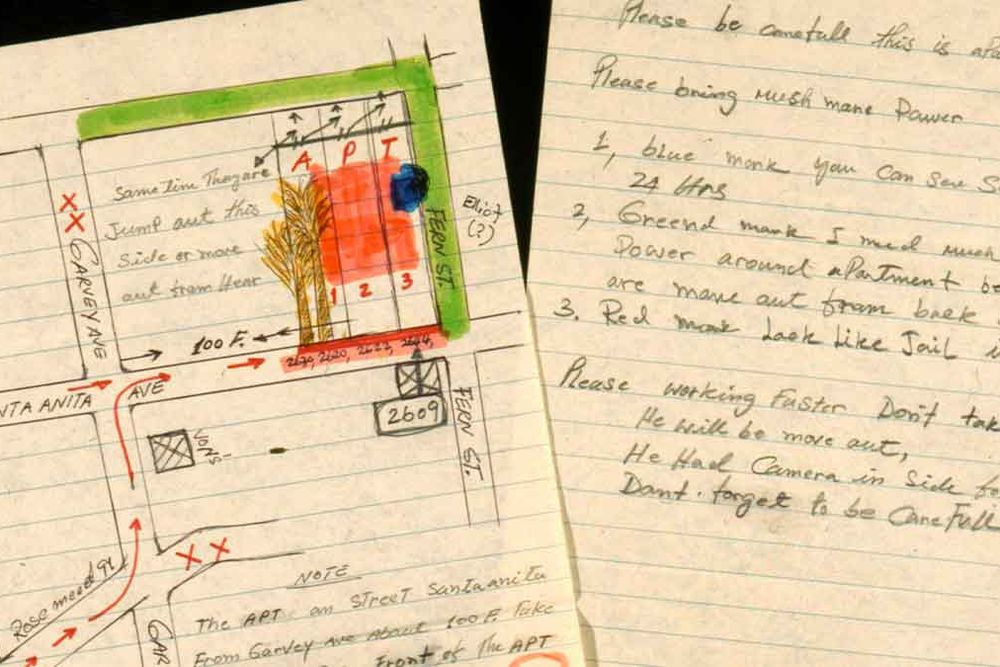 A P T
Same Time They are
Jump aut this
Side or more
aut fram Hear
XX
GARVEY AVE
FERN ST.
Eliot
(?)
1 2 3
100 F.
2620,
NTA ANITA
AVE
2609
FERN ST.
VONS-
X X
Rose mead
GAR
NOTE
The APT. an STreeT SanTa aniTa
From Garvey Ave About 100 F. Take
Front of The APT
Please be carefull this is
Please bring mush mane Power
1, blue mark you can see
24 Hrs
2, Greend mark I need mush
Power around aPartment
are move aut fram back
3. Red mark Look Like Jail
Please working Faster Don't
He will be move aut,
He Had Camera in Side
Dant. forget to be CareFull